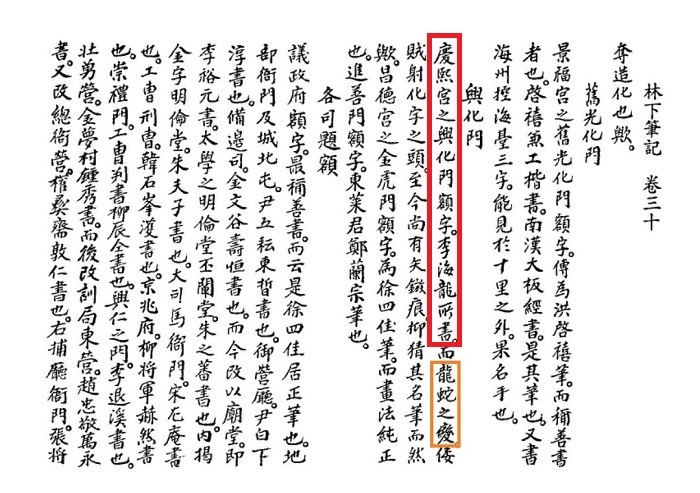 林下筆記 卷三十
奪造化也歟。
舊光化門
景福宮之舊光化門額字。傳爲洪啓禧筆。而稱善書
者也。啓禧兼工楷書。南漢大板經書。是其筆也。又書
海州控海臺三字。能見於十里之外。果名手也。
興化門
慶熙宮之興化門額字。李海龍所書。而龍蛇之變。倭
賊射化字之頭。至今尚有矢鏃痕。抑猜其名筆而然
歟。昌德宮之金虎門額字。爲徐四佳筆。而畫法純正
也。進善門額字。東萊君鄭蘭宗筆也。
各司題額
議政府額字。最稱善書。而云是徐四佳居正筆也。地
部衙門及城北屯。尹五耘東晳書也。御營廳。尹白下
淳書也。備邊司。金文谷壽恒書也。而今改以廟堂。即
李裕元書。太學之明倫堂丕闡堂。朱之蕃書也。內揭
金字明倫堂。朱夫子書也。大司馬衙門。宋尤庵書
也。工曹刑曹。韓石峯濩書也。京兆府。柳將軍赫然書
也。崇禮門。工曹判書柳辰仝書也。興仁之門。李退溪書也。
壯勇營。金夢村鍾秀書。而後改訓局東營。趙忠敬萬永
書。又改總衛營。權彛齋敦仁書也。右捕廳衙門。張將